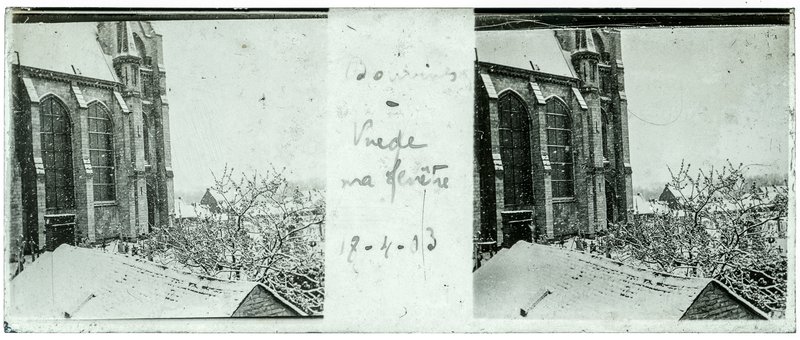 Bouvines
-
Vue de
ma fenêtre
12-4-13